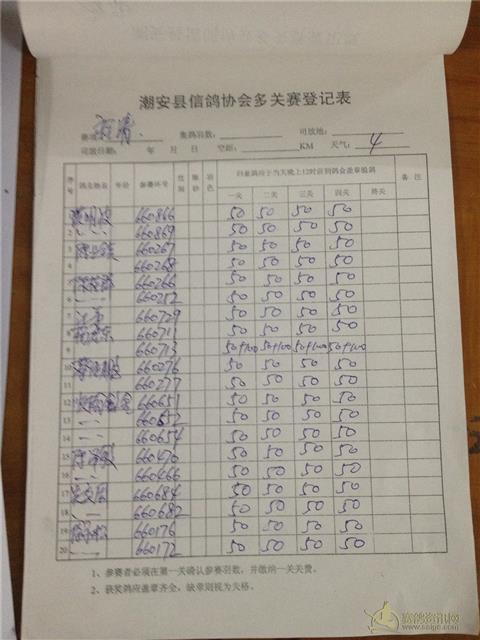 潮安县信鸽协会多关赛登记表
赛项 集鸽羽数: 司放地:
司放日期: 年 月 日 空距: KM 天气: 4
序号 鸽主姓名 年龄 参赛环号 性别 眼砂 羽色 归巢鸽应于当天晚上12时前到鸽会盖章验鸽 备注
一关 二关 三关 四关 终关
1 660866 50 50 50 50
2 660869 50 50 50 50
3 660267 50 50 50 50
4 660268 50 50 50 50
5 660266 50 50 50 50
6 660252 50 50 50 50
7 660729 50 50 50 50
8 660711 50 50 50 50
9 660713 50+100 50+100 50+100 50+100
10 660276 50 50 50 50
11 660277 50 50 50 50
12 660651 50 50 50 50
13 660652 50 50 50 50
14 660654 50 50 50 50
15 660476 50 50 50 50
16 660466 50 50 50 50
17 660684 50 50 50 50
18 660682 50 50 50 50
19 660176 50 50 50 50
20 660172 50 50 50 50
1、参赛者必须在第一关确认参赛羽数，并缴纳一关天费。
2、获奖鸽应盖章齐全，缺章则视为失格。
赛鸽资讯网
www.saige.com